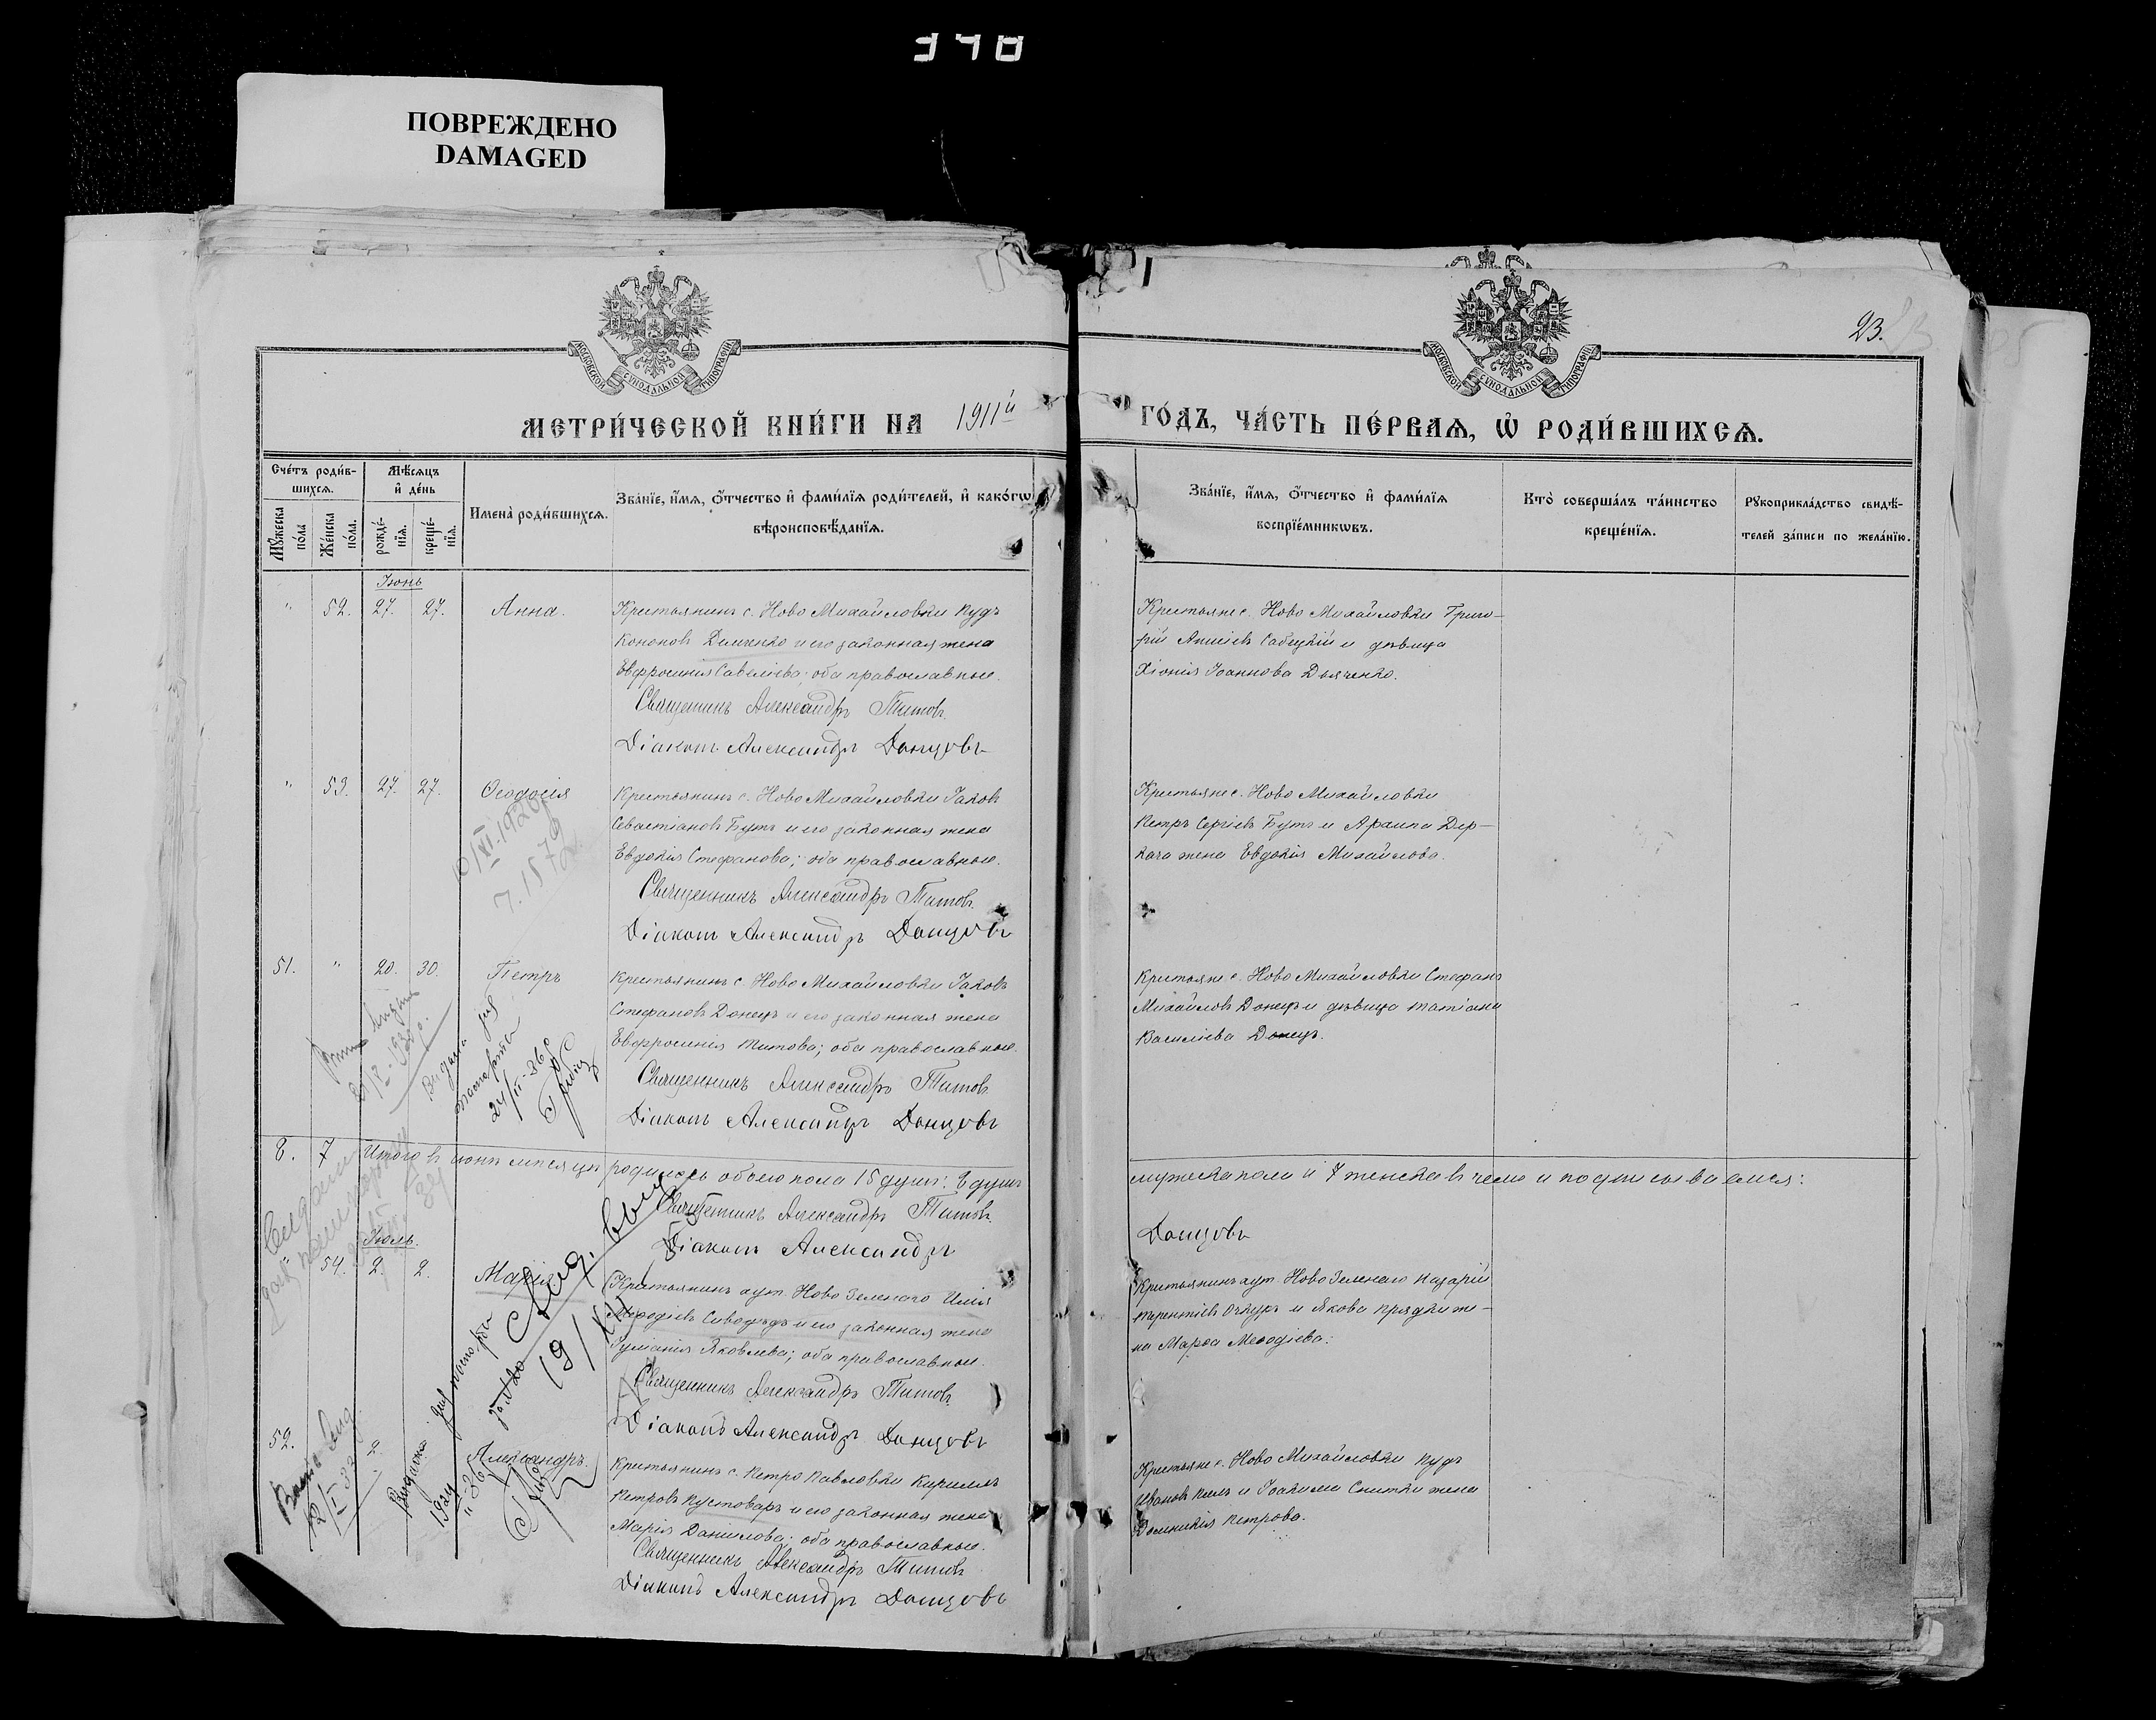 348
ПОВРЕЖДЕНО
DAMAGED
МОСКОВСКОЙ СУНОДАЛЬНОЙ ТИПОГРАФІИ
МОСКОВСКОЙ СУНОДАЛЬНОЙ ТИПОГРАФІИ
23.
МЕТРИ́ЧЕСКОЙ КНИ́ГИ НА 1911й
ГО́ДЪ, ЧА́СТЬ ПЕ́РВАѦ, Ѡ РОДИ́ВШИХСѦ.
Сче́тъ роди́в-
шихсѧ.
Мꙋ́жеска
по́ла
Же́нска
по́ла.
Мѣ́сѧцъ
и҆ де́нь
рожде́-
нїѧ.
креще́-
нїѧ.
Имена̀ роди́вшихсѧ.
Зва́нїе, и҆́мѧ, о҆́тчество и҆ фами́лїѧ роди́телей, и҆ како́гѡ
вѣроисповѣ́данїѧ.
Зва́нїе, и҆́мѧ, о҆́тчество и҆ фами́лїѧ
воспрїе́мникѡвъ.
Кто̀ соверша́лъ та́инство
креще́нїѧ.
Рꙋкоприкла́дство свидѣ́-
телей за́писи по жела́нїю.
Іюнь
" 52. 27. 27. Анна.
Крестьянинъ с. Ново Михайловки Іудъ
Кононовъ Демченко и его законная жена
Евфросинія Савеліева; оба православные.
Священникъ Александръ Титовъ.
Діаконъ Александръ Донцовъ
Крестьяне с. Ново Михайловки Григо-
рій Сабецкій и дѣвица
Хіонія Іоаннова Дьяченко.
" 53. 27. 27. Ѳеодосія
10/XI-1926
Крестьянинъ с. Ново Михайловки Іаковъ
Севастіановъ Бутъ и его законная жена
Евдокія Стефанова; оба православные.
Священникъ Александръ Титовъ.
Діаконъ Александръ Донцовъ
Крестьяне с. Ново Михайловки
Петръ Сергіевъ Бутъ и Архипа Дер-
кача жена Евдокія Михайлова.
51. " 20. 30. Петръ
Крестьянинъ с. Ново Михайловки Іаковъ
Стефановъ Донецъ и его законная жена
Евфросинія Титова; оба православные.
Священникъ Александръ Титовъ
Діаконъ Александръ Донцовъ
Крестьяне с. Ново Михайловки Стефанъ
Михайловъ Донецъ и дѣвица Татіана
Василіева Донецъ.
Видана
паспорта
24/II-36
8. 7 Итого въ іюнѣ мѣсяцѣ родилось обоего пола 15 душъ: 8 душъ
мужеска пола и 7 женска въ чемъ и подписываемся:
Священникъ Александръ Титовъ.
Діаконъ Александръ
Донцовъ
Іюль.
" 54. 2. 2. Марія
Крестьянинъ хут. Ново Зеленаго Илія
Меѳодіевъ и его законная жена
Іуліанія Яковлева; оба православные.
Священникъ Александръ Титовъ.
Діаконъ Александръ Донцовъ
Крестьянинъ хут. Ново Зеленаго Назарій
Терентіевъ Очкуръ и Якова Прядки же-
на Марѳа Меѳодіева.
52. 2. Александръ.
Крестьянинъ с. Петро Павловки Кириллъ
Петровъ Пустоваръ и его законная жена
Марія Даніилова; оба православные.
Священникъ Александръ Титовъ
Діаконъ Александръ Донцовъ
Крестьяне с. Ново Михайловки Іудъ
Ивановъ и Іоакима жена
Домникія Петрова.